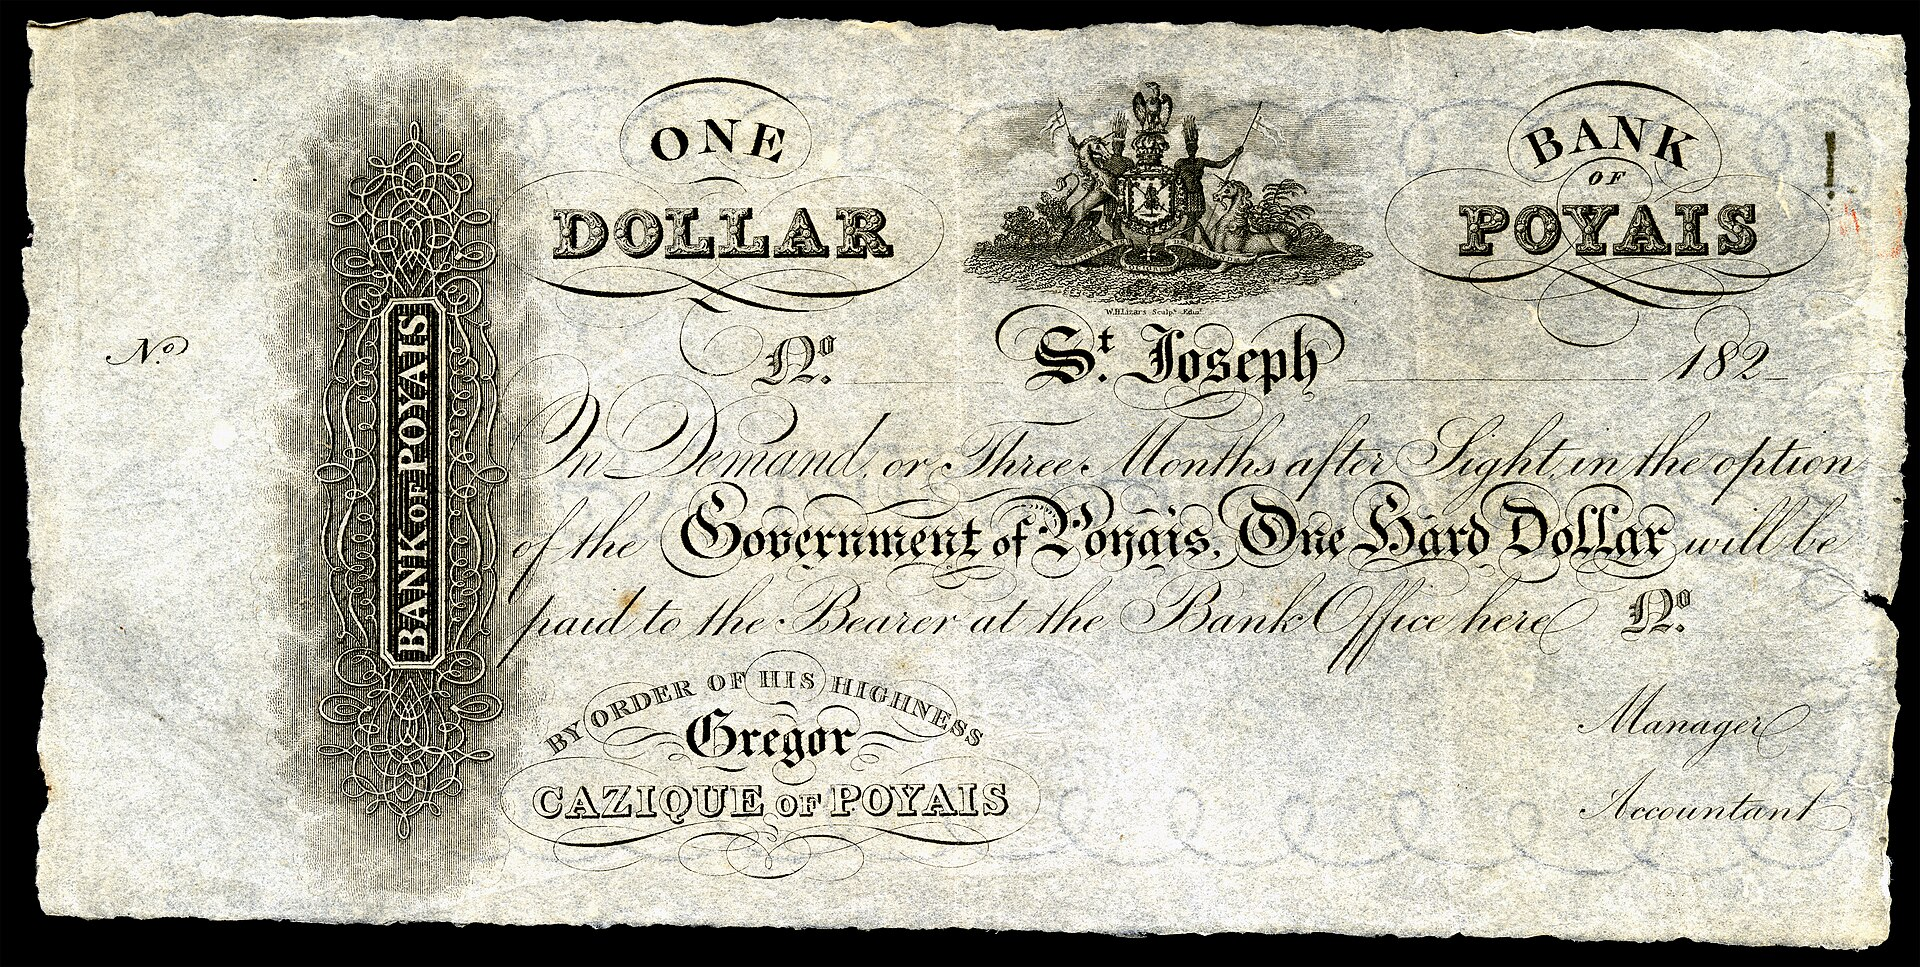 ONE
DOLLAR
BANK
OF
POYAIS
W.H.Lizars Sculpt. Edinr.
No.
BANK OF POYAIS
No. St. Joseph 182
On Demand, or Three Months after Sight, in the option
of the Government of Poyais, One Hard Dollar will be
paid to the Bearer at the Bank Office here No.
BY ORDER OF HIS HIGHNESS
Gregor
CAZIQUE OF POYAIS
Manager
Accountant